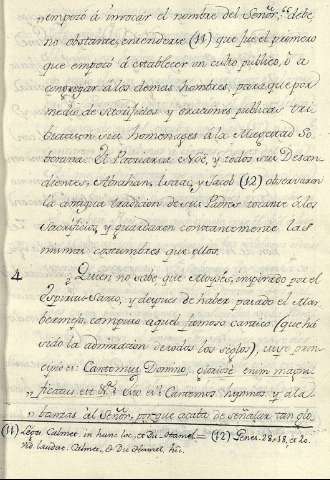 „empezó á invocar el nombre del Señor," debe,
no obstante, entenderse (11) que fué el primero
que empezó á establecer un culto público, ó á
congregar á los demas hombres, para que por
medio de sacrificios y oraciones publicas tri
butasen sus homenages á la Magestad So
berana. El Patriarca Noë, y todos sus Descen
dientes, Abrahan, Isaac, y Jacob (12) observaron
la antigua tradicion de sus Padres tocante á los
Sacrificios, y guardaron constantemente las
mismas costumbres que ellos.
4 ¿Quien no sabe que Moysés, inspirado por el
Espiritu-Santo, y despues de haber pasado el Mar
bermejo, compuso aquel famoso cantico (que há
sido la admiracion de todos los siglos), cuyo prin
cipio es: Cantemus Domino, gloriosè enim magni
„ficatus est &c. Esto es: Cantemos hymnos y ala
„banzas al Señor, porque acaba de señalar tan glo
(11) Calmet. in hunc loc. et Du-Hamel = (12) Genes. 28. 18. et 20.
vid. laudat. Calmet, & Du Hamel, hic.